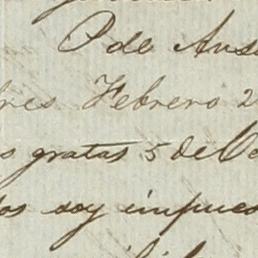 P de Ans
res Febrero 2
s gratas 5 de
os soy impues